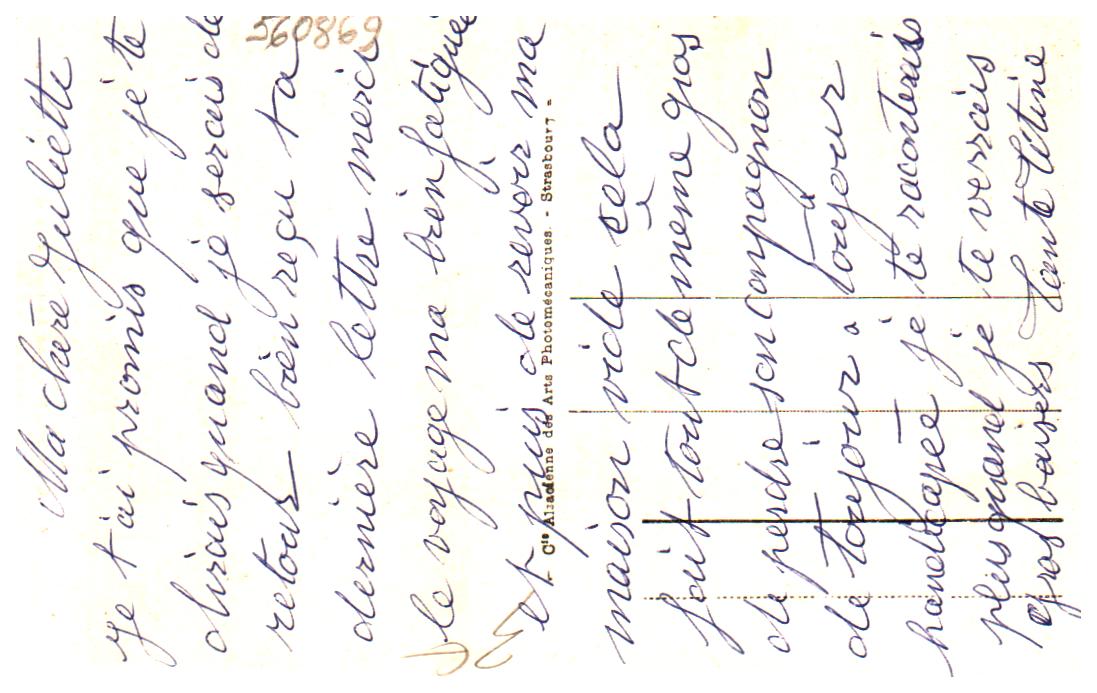 560869
Ma chère Juliette
je t'ai promis que je te
dirais quand je serais de
retour bien reçu ta
dernière lettre merci
le voyage ma bien fatiguée
et puis de revoir ma
Cie Alsacienne des Arts Photomécaniques. - Strasbourg -
maison vide sela
fait tout de meme gros
de perdre son compagnon
de toujour à toujour
handicapé je te raconterais
plus quand je te verrais
Gros baisers tante Titine